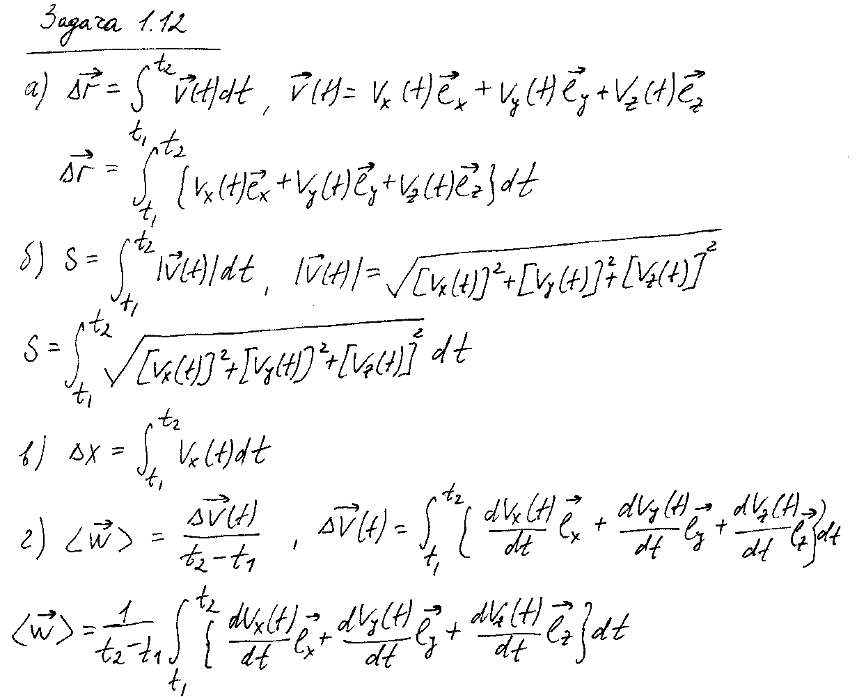 Задача 1.12
а) Δr⃗ = ∫_{t₁}^{t₂} v⃗(t)dt, v⃗(t) = Vₓ(t)e⃗ₓ + V_y(t)e⃗_y + V_z(t)e⃗_z
Δr⃗ = ∫_{t₁}^{t₂} {Vₓ(t)e⃗ₓ + V_y(t)e⃗_y + V_z(t)e⃗_z}dt
б) S = ∫_{t₁}^{t₂} |v⃗(t)|dt, |v⃗(t)| = √([Vₓ(t)]² + [V_y(t)]² + [V_z(t)]²)
S = ∫_{t₁}^{t₂} √([Vₓ(t)]² + [V_y(t)]² + [V_z(t)]²) dt
в) Δx = ∫_{t₁}^{t₂} Vₓ(t)dt
г) <w⃗> = ΔV⃗(t)/(t₂−t₁), ΔV⃗(t) = ∫_{t₁}^{t₂} {dVₓ(t)/dt e⃗ₓ + dV_y(t)/dt e⃗_y + dV_z(t)/dt e⃗_z}dt
<w⃗> = 1/(t₂−t₁) ∫_{t₁}^{t₂} {dVₓ(t)/dt e⃗ₓ + dV_y(t)/dt e⃗_y + dV_z(t)/dt e⃗_z}dt